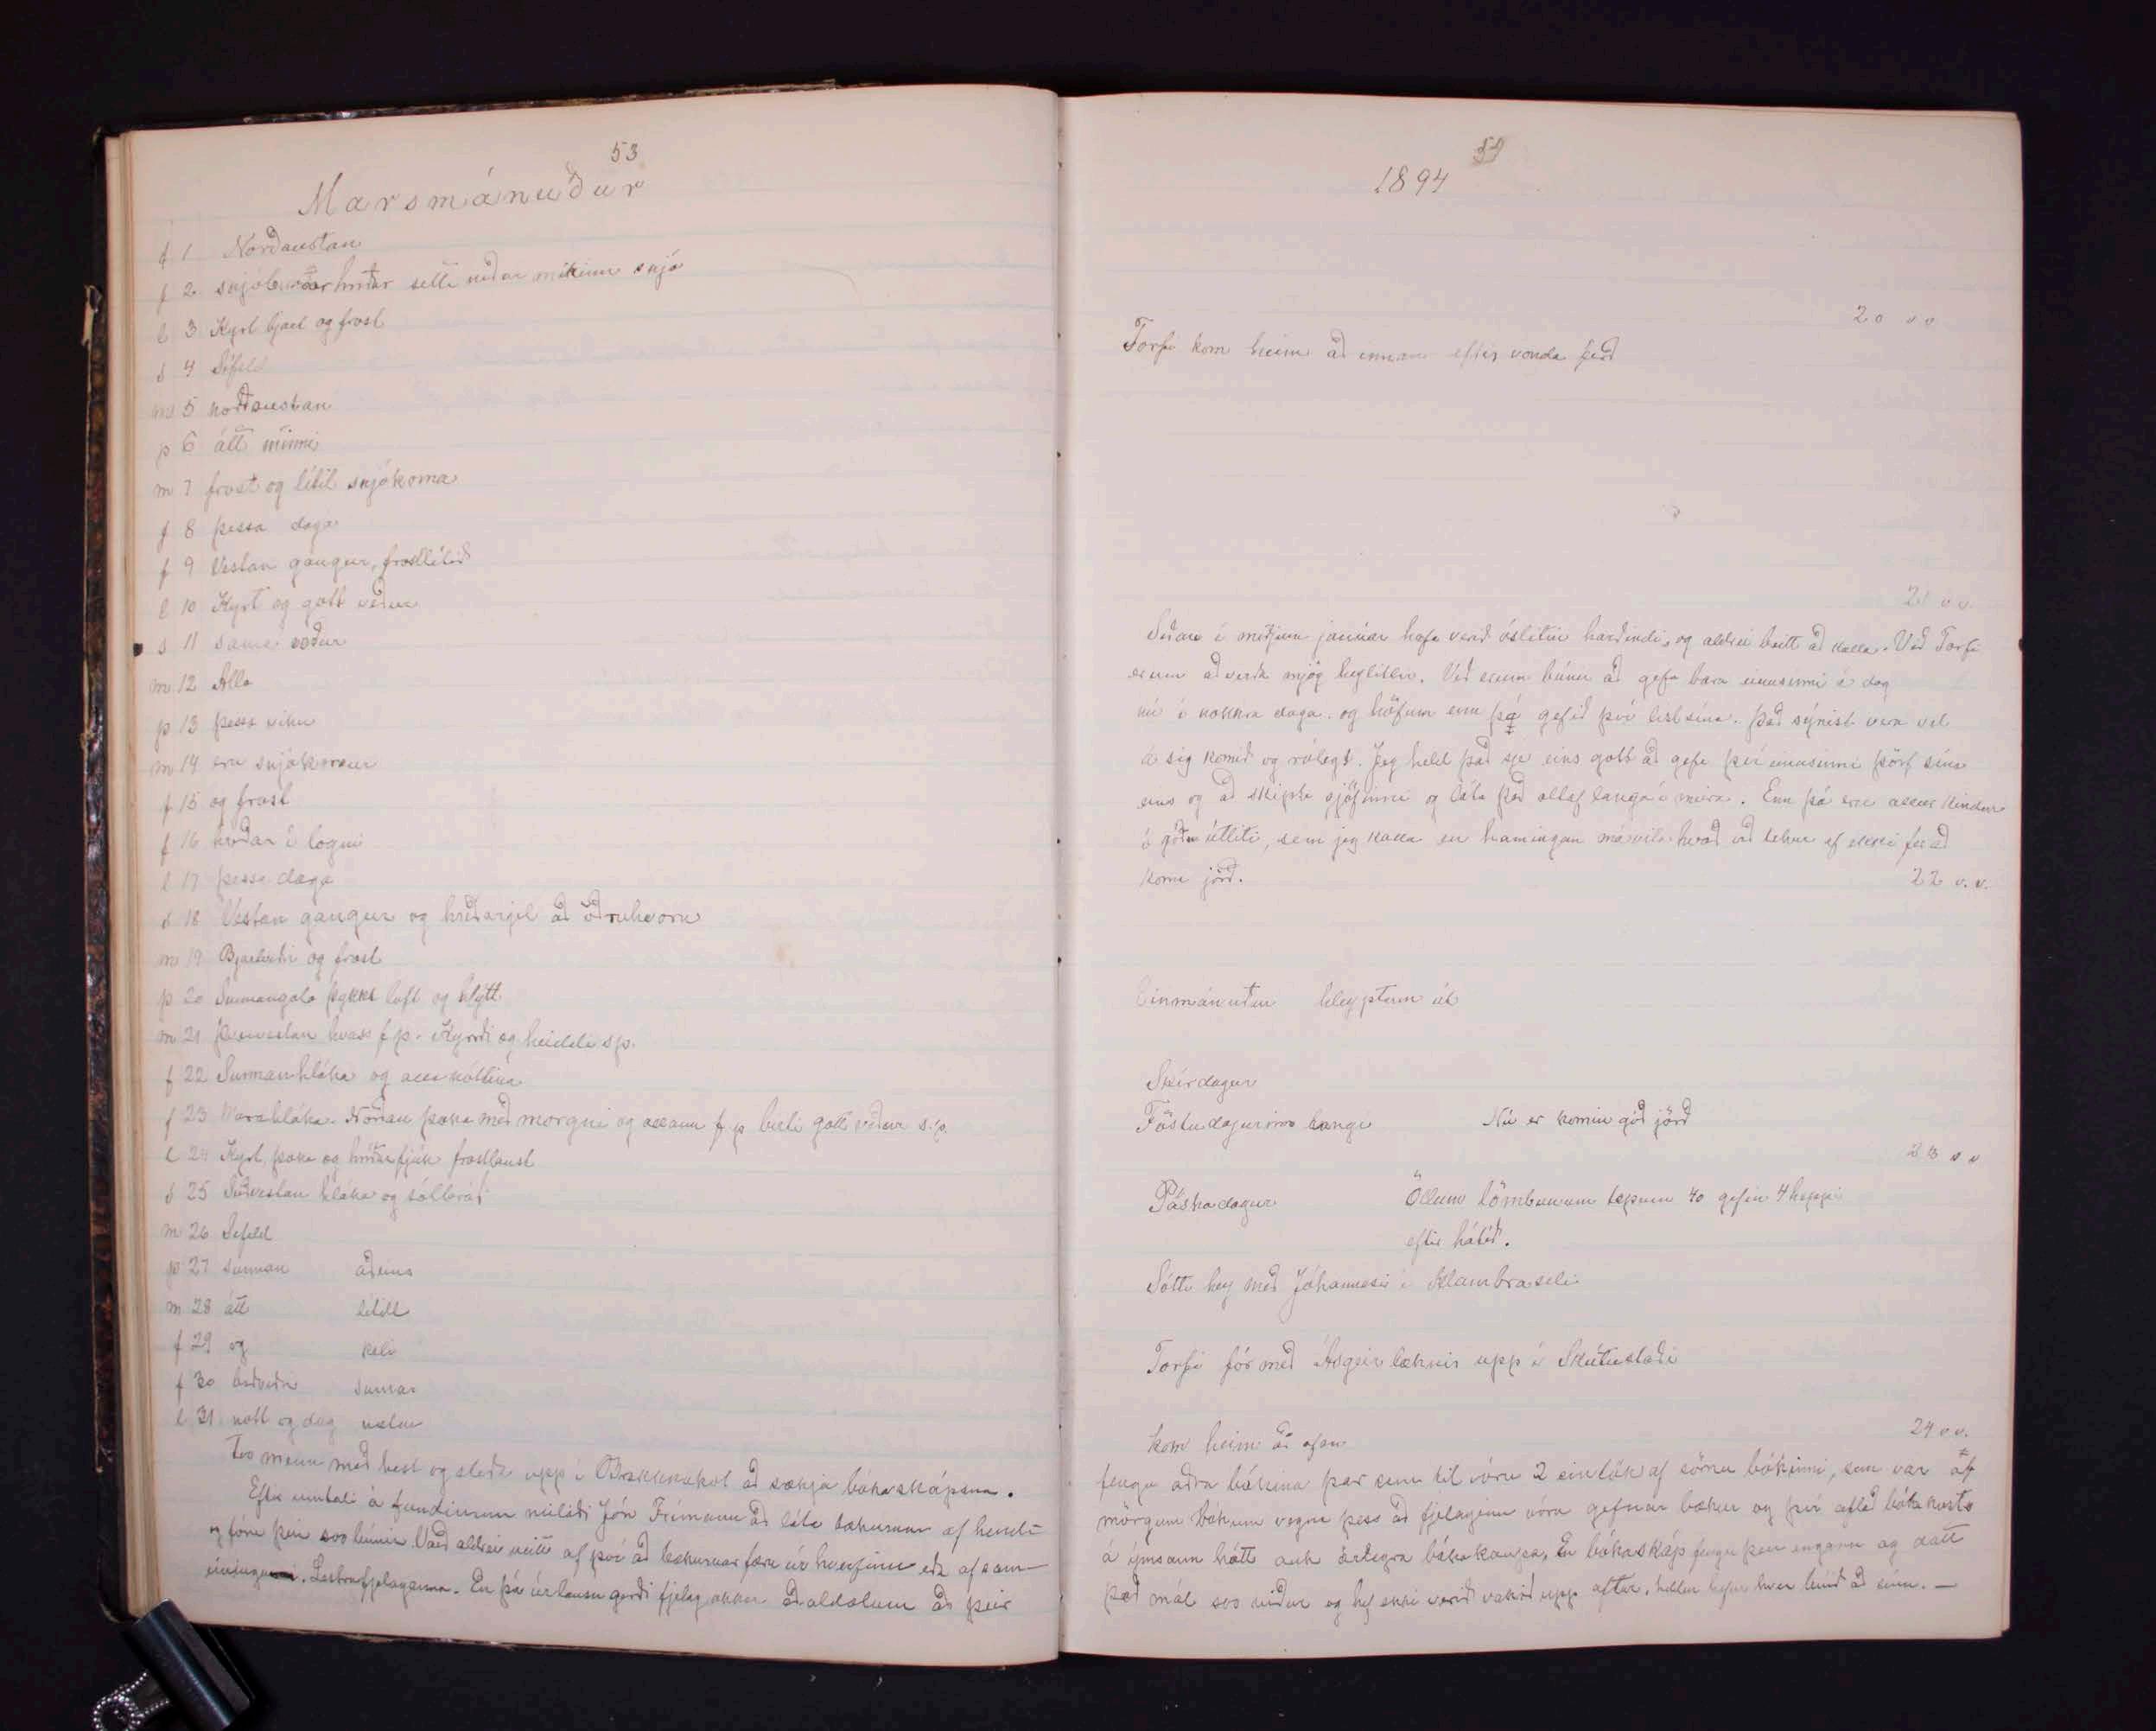 53
Marsmánuður
f 1 Norðaustan
f 2 snjóburðarhríðar setti niður mikinn snjó
l 3 Kyrt bjart og frost
s 4 Sífeld
m 5 norðaustan
þ 6 átt minni
m 7 frost og lítil snjókoma
f 8 þessa daga
f 9 Vestan gangur, frostlítið
l 10 Kyrt og gott veður
s 11 sama veður
m 12 Alla
þ 13 þessa viku
m 14 eru snjókomur
f 15 og frost
f 16 hríðar í logni
l 17 þessa daga
s 18 Vestan gangur og hríðarjel að öðruhvoru
m 19 Bjartviðri og frost
þ 20 Sunnangola þykkt loft og hlýtt
m 21 vestan hvass f.p. Kyrði og heiddi s.p.
f 22 Sunnanhláka og alla nóttina
f 23 Norðan þoka með morgni og allann f.p. birti gott veður s.p.
l 24 Kyrt, þoka og hríðarfjúk frostlaust
s 25 Suðvestan hláka og sólbráð
m 26 Sifeld
þ 27 sunnan aðeins
m 28 átt lítill
f 29 og keli
f 30 bráðviðri sumar
l 31 nótt og dag nætur
Tvo menn með hest og sleða upp í Brekknakot að sækja bókaskápana.
Eftir umtali á fundinum neitaði Jón Frímann að láta bækurnar af hendi
og fóru þeir svo búnir. Varð aldrei neitt af því að bækurnar færu úr hverfinu eða af sam-
einingunni Lestrarfjelaganna. En þá úrlausn gerði fjelag okkar Aðaldælum að þeir
1894
54
20 v v
Torfi kom heim að innan eftir vonda ferð
21 v v
Síðan í miðjum janúar hafa verið óslitin harðindi, og aldrei beitt að kalla. Við Torfi
erum að verða mjög heylitlir. Við erum búnir að gefa bara einusinni á dag
nú í nokkra daga. og höfum enn þá gefið því list sína. Það sýnist vera vel
á sig komið og rólegt. Jeg held það sje eins gott að gefa því einusinni þörf sína
eins og að skipta gjöfinni og láta það altaf langa í meira. Enn þá eru allar kindur
í góðu útliti, sem jeg kalla en hamingjan má vita hvað við tekur ef ekki fer að
koma jörð.
22 v. v.
Einmánuður hleyptum út
Skírdagur
Föstudagurinn langi Nú er komin góð jörð
23 v v
Páskadagur Öllum lömbunum tæpum 40 gefin 4 heyi
eftir hátíð.
Sótti hey með Jóhannesi í Klambraseli
Torfi fór með Ásgeir læknir upp í Skútustaði
24 v v.
kom heim að ofan
fengu aðra bókina þar sem til vóru 2 eintök af sömu bókinni, sem var af
mörgum bókum vegna þess að fjelaginu vóru gefnar bækur og því aflað bókakosts
á ýmsann hátt auk árlegra bókakaupa. En bókaskáp fengu þeir engann og datt
það mál svo niður og hef ekki verið vakið upp aftur, heldur hefur hver búið að sínu. —